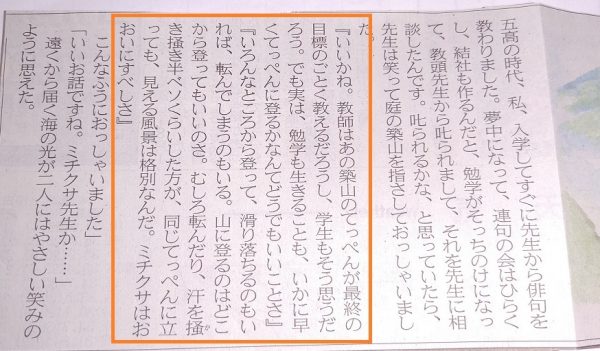 五高の時代、私、入学してすぐに先生から俳句を
教わりました。夢中になって、連句の会はひらく
し、結社も作るんだと、勉学がそっちのけになっ
て、教頭先生から叱られまして、それを先生に相
談したんです。叱られるかな、と思っていたら、
先生は笑って庭の築山を指さしておっしゃいまし
た。
『いいかね。教師はあの築山のてっぺんが最終の
目標のごとく教えるだろうし、学生もそう思うだ
ろう。でも実は、勉学も生きることも、いかに早
くてっぺんに登るかなんてどうでもいいことさ』
『いろんなところから登って、滑り落ちるのもい
れば、転んでしまうのもいる。山に登るのはどこ
から登ってもいいのさ。むしろ転んだり、汗を掻
き掻き半ベソくらいした方が、同じてっぺんに立
っても、見える風景は格別なんだ。ミチクサはお
おいにすべしさ』
こんなふうにおっしゃいました」
「いいお話ですね。ミチクサ先生か……」
遠くから届く海の光が二人にはやさしい笑みの
ように思えた。